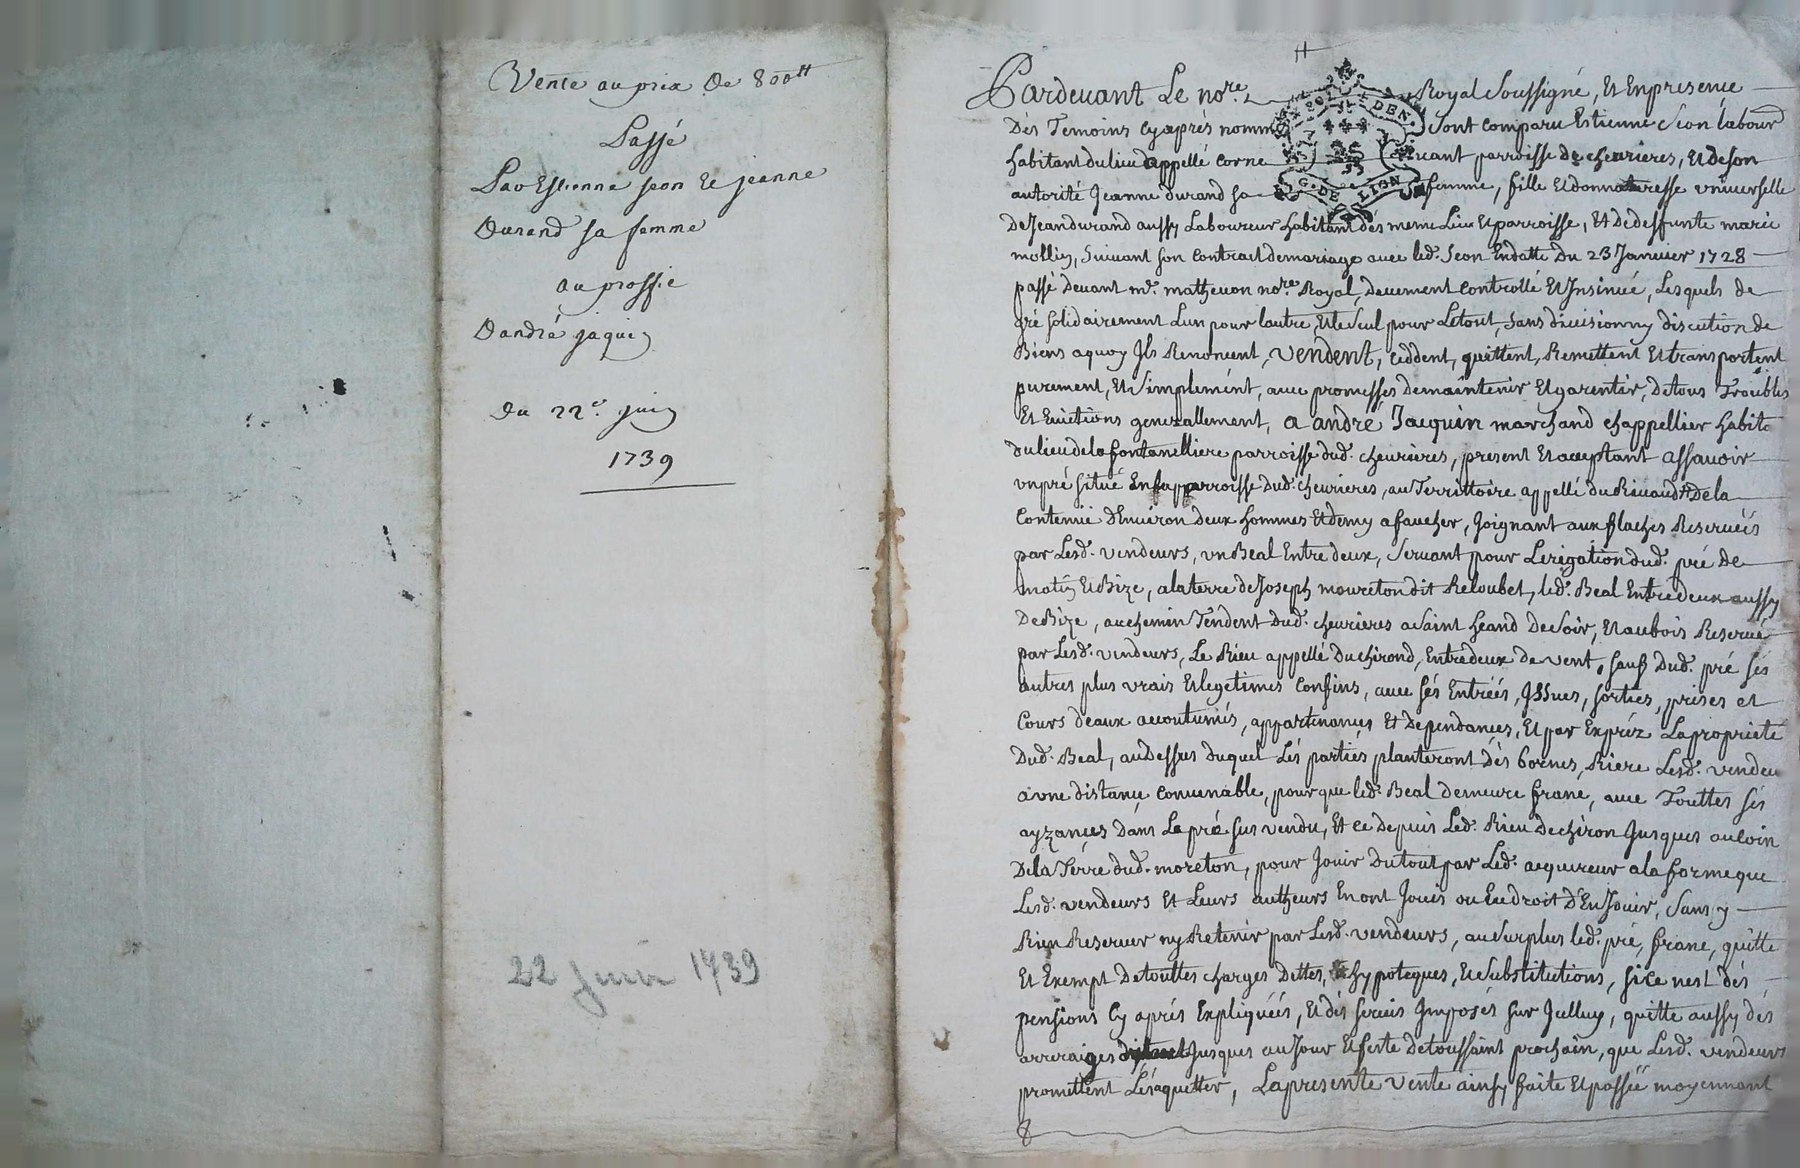 Vente au prix de 800tt
Passé
Par Estienne seon et jeanne
Durand sa femme
au proffit
D'andré jaquin
du 22e. juin
1739
22 Juin 1739
Pardevant Le nore. Royal Soussigné, Et En presence
Dés Temoins cy aprés nommés Sont comparu Estienne Seon labourr
habitant du lieu appellé corne parroisse de chevrieres, Et de son
autorité Jeanne durand sa femme, fille Et donnateresse universelle
De Jean durand aussy Laboureur habitant dés meme Lieu Et parroisse, Et De deffunte marie
mollin, Suivant son contract de mariage avec led. Seon En datte Du 23 Janvier 1728
passé Devant me. matheuon nore. Royal, Deuement Controllé Et Insinué, Lesquels de
gré solidairement L'un pour l'autre, Et le Seul pour Le tout, Sans division ny discution de
Biens a quoy Ils Renoncent, vendent, ceddent, quittent, Remettent Et transportent
purement, Et Simplemént, avec promesses de maintenir Et garentir, De tous Troubles
Et Evictions generallement, a andré Jacquin marchand chappellier habitt
du lieu de la fontanelliere parroisse dud. chevrieres, present Et acceptant assavoir
un pré situé En la parroisse Dud. chevrieres, au Territtoire appellé du Rivaud de la
Contenüe d'Environ deux hommes Et demy a faucher, Joignant aux flaches Reservéés
par Lesd. vendeurs, un Beal Entre deux, Servant pour L'erigation dud. pré de
matin Et Bize, a la terre de Joseph moureton dit Reloubet, led. Beal Entre deux aussy
De Bize, au chemin Tendent Dud. chevrieres a Saint heand De Soir, Et au bois Reservé
par Lesd. vendeurs, Le Rieu appellé Du chirond, Entre deux de vent, sauf Dud. pré sés
autres plus vrais Et legetimes Confins, avec sés Entréés, Issues, sorties, prises et
Cours d'eaux accoutumés, appartenances Et Dependances, Et par Expréz La proprieté
Dud. Beal, au Dessus duquel Lés partiés planteront Dés bornes, Riere Lesd. vendeu
a une distance convenable, pour que led. Beal demeure franc, avec Touttes sés
ayzances Dans Le pré sus vendu, Et ce Depuis Led. Rieu De chiron Jusques au coin
De la Térre dud. moreton, pour Jouir Du tout par Led. acquereur a la forme que
Lesd. vendeurs Et Leurs autheurs En ont Jouis ou Eu droit d'En Jouir, Sans y
Rien Reserver ny Retenir par Lesd. vendeurs, au Surplus led. pré, franc, quitte
Et Exempt De touttes charges Dettes, hypoteques, Et Substitutions, si ce n'est dés
pensions Cy aprés Expliquéés, Et dés Imposés sur Jcelluy, quitte aussy dés
arreraiges Jusques au Jour Et feste De toussaint prochain, que Lesd. vendeurs
promettent Lés aquetter, La presente vente ainsy faite Et passéé moyennant